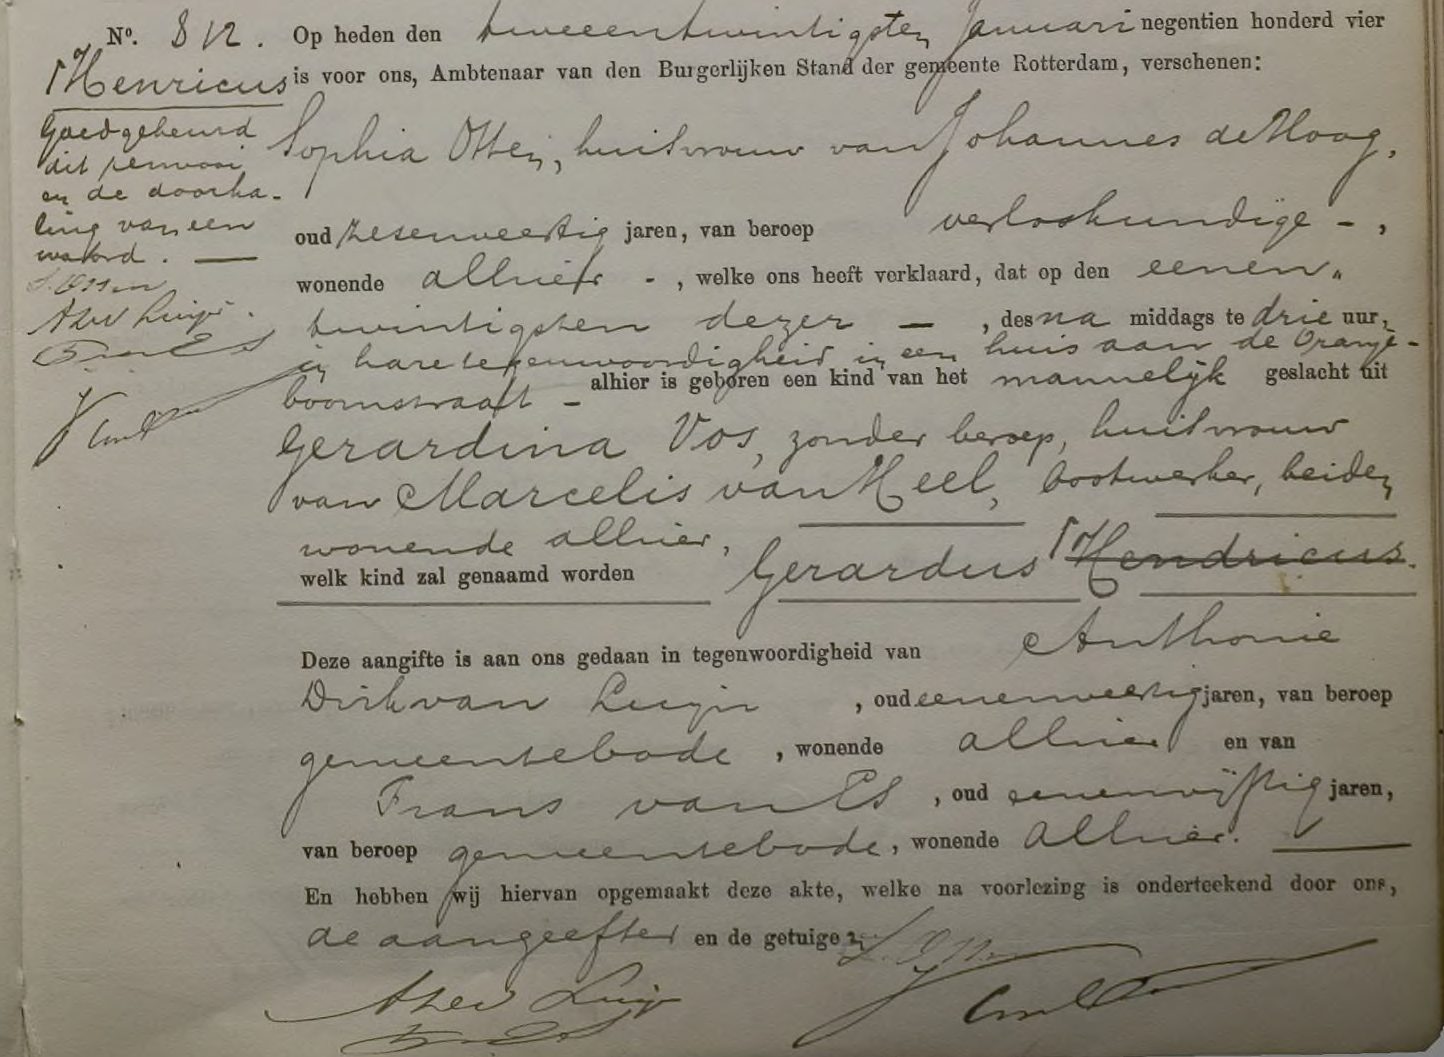 No. 812. Op heden den tweeentwintigsten Januari negentien honderd vier
Henricus
is voor ons, Ambtenaar van den Burgerlijken Stand der gemeente Rotterdam, verschenen:
Goedgekeurd
dit renvooi
en de doorha-
ling van een
woord. —
Sophia Otten, huisvrouw van Johannes de Hoog,
oud zesenveertig jaren, van beroep verloskundige - ,
wonende alhier - , welke ons heeft verklaard, dat op den eenen"
twintigsten dezer — , des na middags te drie uur,
in hare tegenwoordigheid in een huis aan de Oranje-
boomstraat - alhier is geboren een kind van het mannelijk geslacht uit
Gerardina Vos, zonder beroep, huisvrouw
van Marcelis van Heel, bootwerker, beiden
wonende alhier,
welk kind zal genaamd worden Gerardus Hendricus.
Deze aangifte is aan ons gedaan in tegenwoordigheid van Anthonie
Dirk van Luijn , oud eenenveertig jaren, van beroep
gemeentebode , wonende alhier en van
Frans van Es , oud eenenvijftig jaren,
van beroep gemeentebode, wonende alhier. —
En hebben wij hiervan opgemaakt deze akte, welke na voorlezing is onderteekend door ons,
de aangeefster en de getuigen.